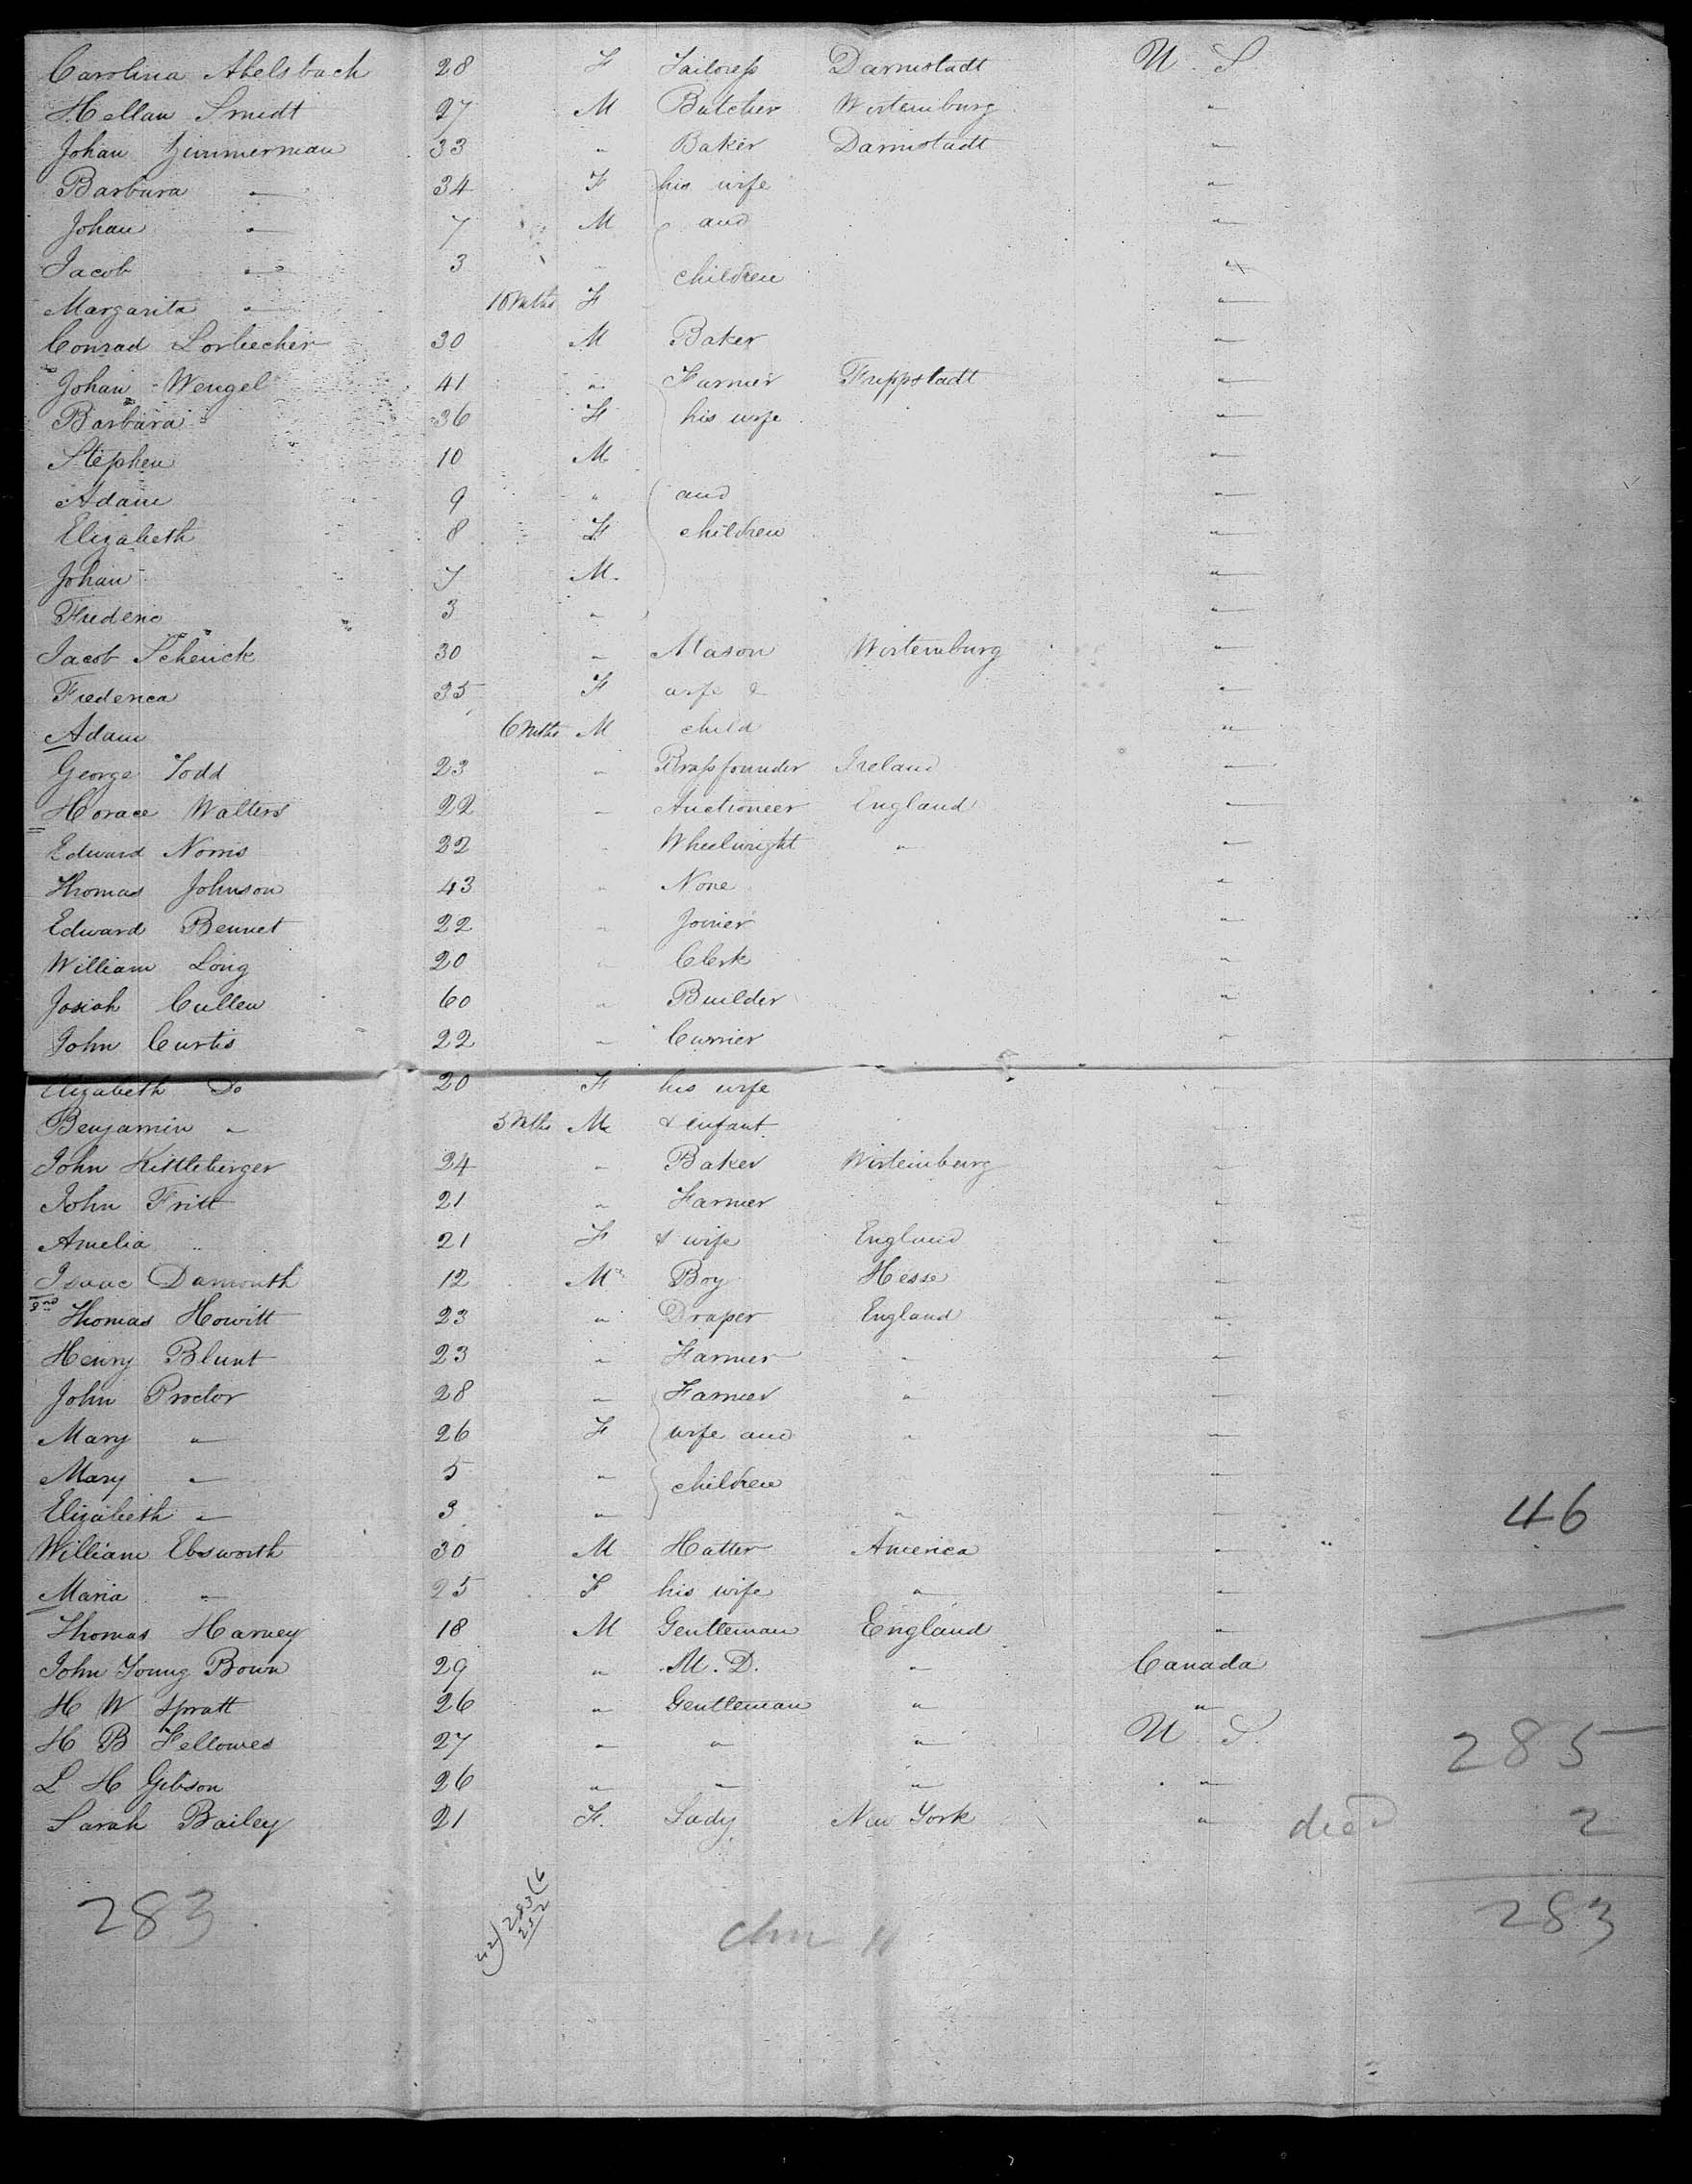 Carolina Abelsbach 28 F Tailoress Darmstadt U. S
Hellan Smidt 27 M Butcher Wirtemburg "
Johan Zimmerman 33 " Baker Darmstadt "
Barbara " 34 F his wife "
Johan " 7 M and "
Jacob " 3 " children "
Margarita " 10 Mths F "
Conrad Lorbecher 30 M Baker "
Johan Wengel 41 " Farmer Frippstadt "
Barbara 36 F his wife "
Stephen 10 M "
Adam 9 " and "
Elizabeth 8 F children "
Johan 7 M. "
Frederic 3 " "
Jacob Schenick 30 " Mason Wirtemburg "
Frederica 35 F wife & "
Adam 6 Mths M child "
George Todd 23 " Brassfounder Ireland "
Horace Walters 22 " Auctioneer England "
Edward Norris 32 " Wheelwright " "
Thomas Johnson 43 " None "
Edward Bennet 22 " Joiner "
William Long 20 " Clerk "
Josiah Cullen 60 " Builder "
John Curtis 22 " Currier "
Elizabeth Do 20 F his wife "
Benjamin " 3 Mths M & enfant "
John Kittleberger 24 " Baker Wirtemburg "
John Fritt 21 " Farmer "
Amelia " 21 F & wife England "
Isaac Damouth 12 M Boy Hesse "
2nd Thomas Howitt 23 " Draper England "
Henry Blunt 23 " Farmer " "
John Proctor 28 " Farmer " "
Mary " 26 F wife and " "
Mary " 5 " children "
Elizabeth " 3 " " " 46
William Ebsworth 30 M Hatter America "
Maria " 25 F his wife " "
Thomas Harvey 18 M Gentleman England "
John Young Bown 29 " M. D. " Canada
H W Spratt 26 " Gentleman " "
H B Fellowes 27 " " " U. S. 285
L H Gibson 26 " " " "
Sarah Bailey 21 F. Lady New York " died 2
283 42) 283 (6 283
252